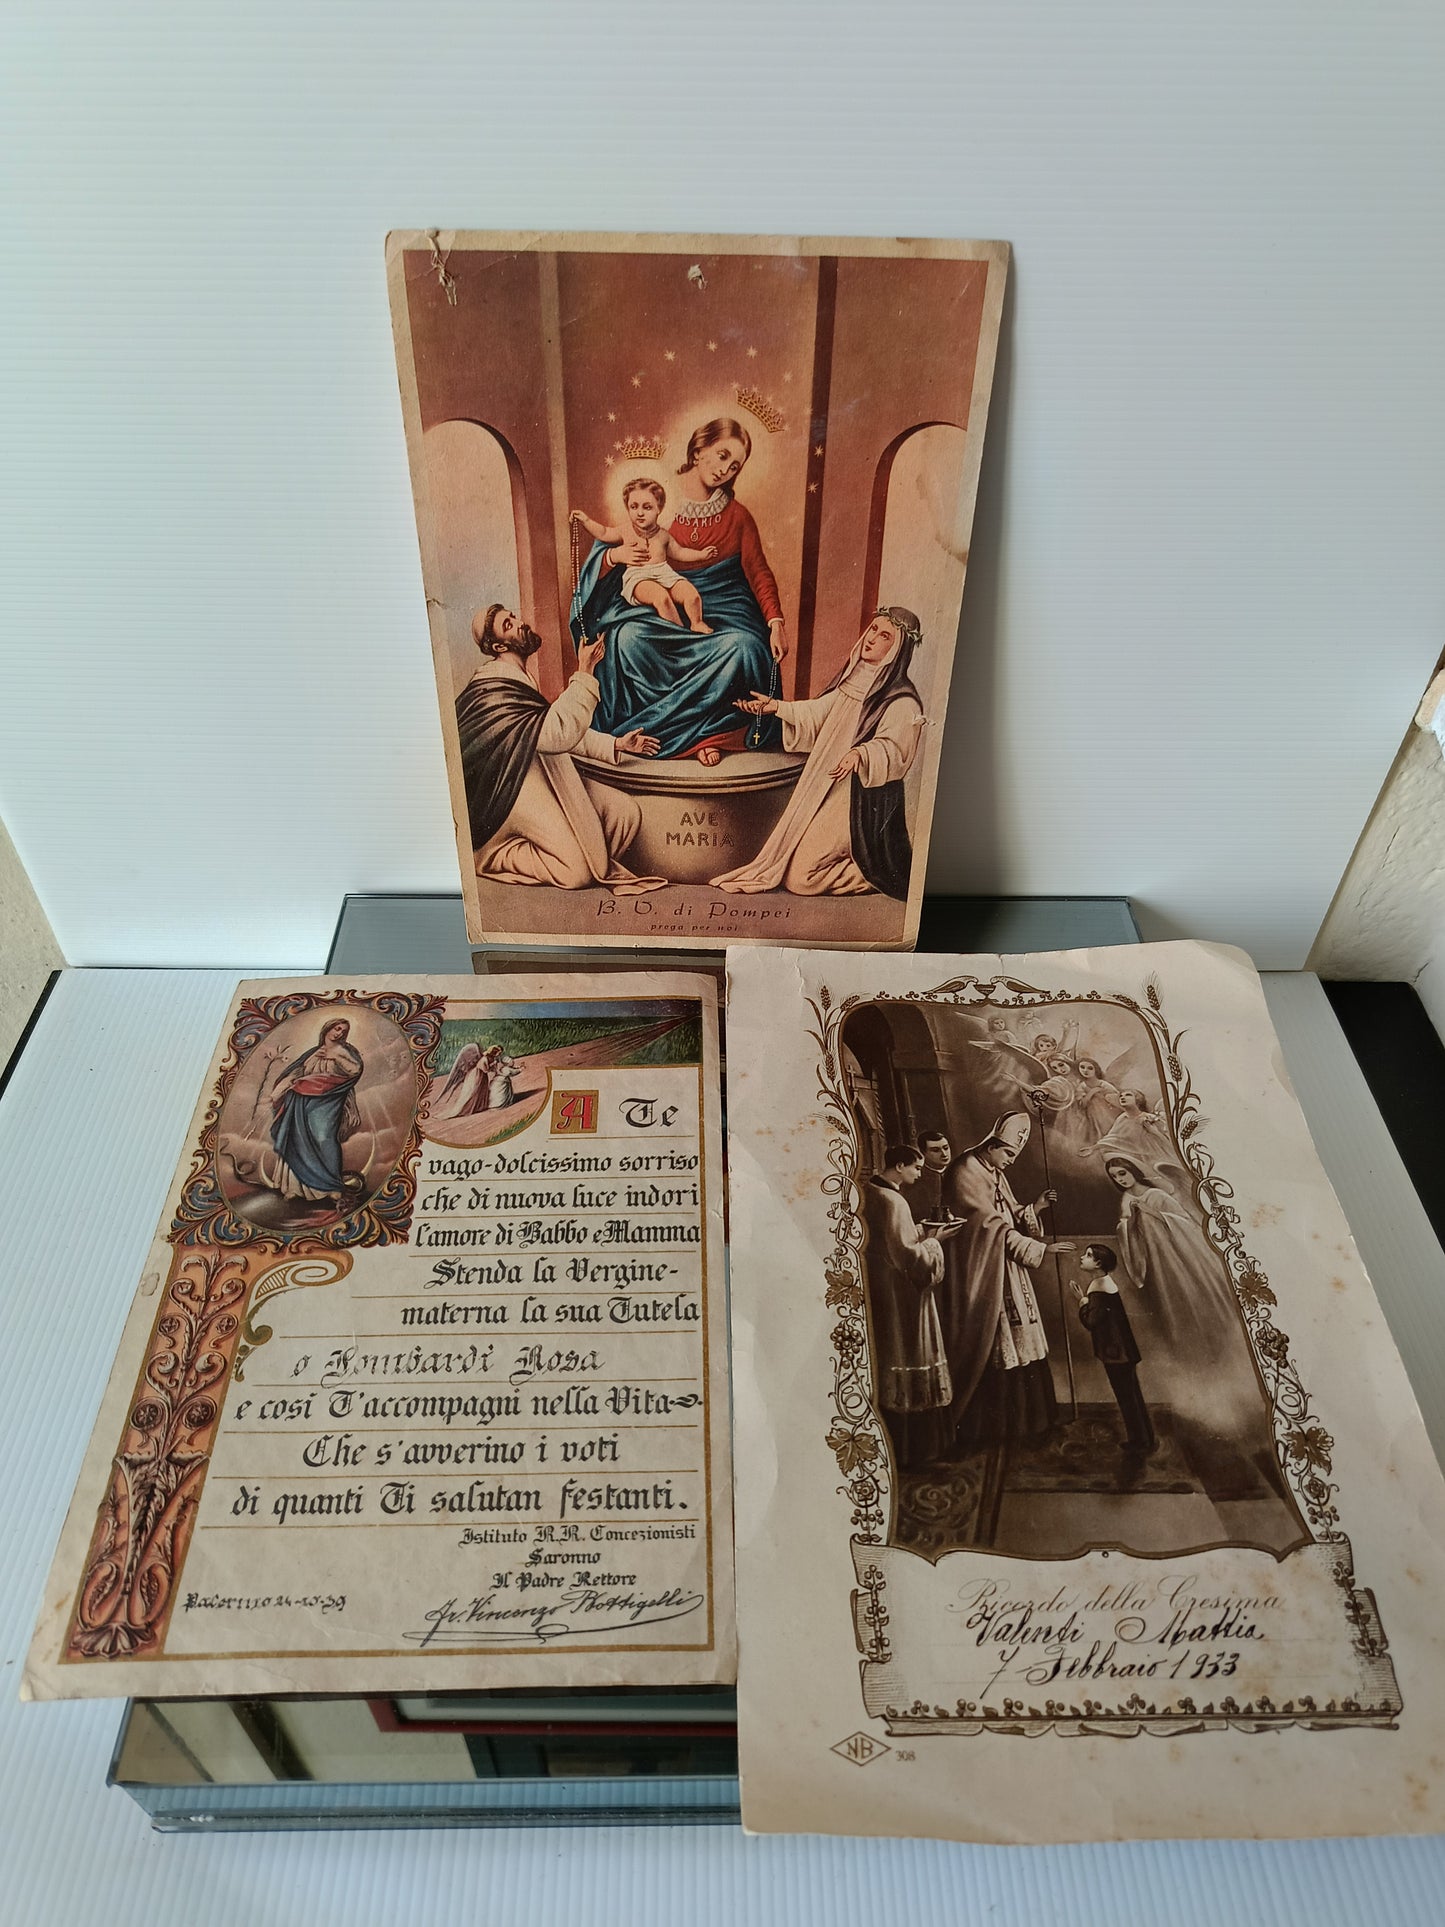 ROSARIO
AVE
MARIA
B. V. di Pompei
prega per noi
A Te
vago-dolcissimo sorriso
che di nuova luce indori
l'amore di Babbo e Mamma
Stenda la Vergine-
materna la sua Tutela
o Lombardi Rosa
e così T'accompagni nella Vita
Che s'avverino i voti
di quanti Ti salutan festanti.
Istituto R.R. Concezionisti
Saronno
Il Padre Rettore
24-10-39
Fr. Vincenzo
Ricordo della Cresima
Valenti Mattia
7-Febbraio 1933
NB 308